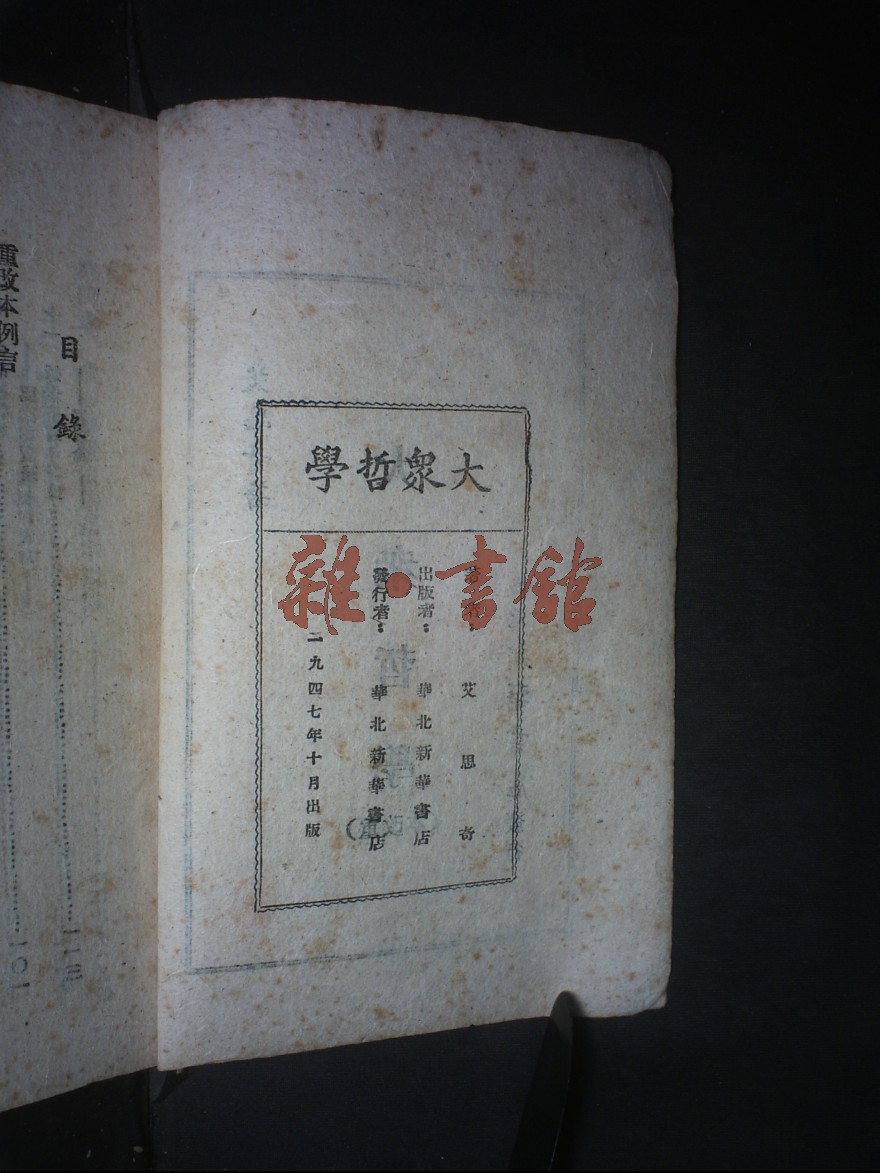 大衆哲學
著者：艾思奇
出版者：華北新華書店
發行者：華北新華書店
一九四七年十月出版
雜·書館
目錄
重改本例言